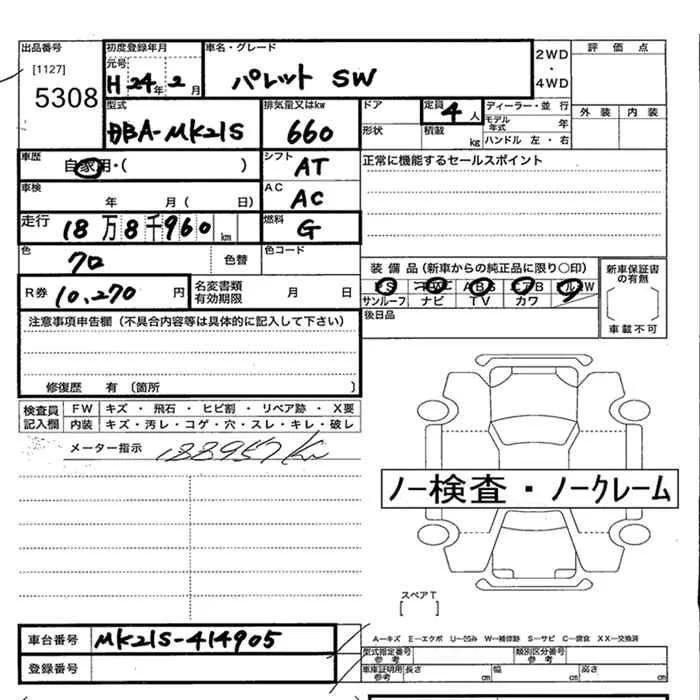 出品番号 初度登録年月 車名・グレード 2WD・4WD 評価点
[1127] 元号
5308 H 24年 2月 パレット SW
型式 排気量又はkw ドア 定員 4人 ディーラー・並行 外装 内装
DBA-MK21S 660 形状 積載 kg モデル年式 年
ハンドル 左・右
車歴 自家用・( ) シフト AT 正常に機能するセールスポイント
車検 年 月( 日) AC AC
走行 18万8千960km 燃料 G
色 クロ 色替 色コード
装備品(新車からの純正品に限り○印) 新車保証書の有無
R券 10,270円 名変書類有効期限 月 日 PS PW ABS エアB アルミW
サンルーフ ナビ TV カワ
〔 〕
注意事項申告欄(不具合内容等は具体的に記入して下さい) 後日品 車載不可
修復歴 有〔箇所 〕
検査員記入欄 FW キズ・飛石・ヒビ割・リペア跡・X要
内装 キズ・汚レ・コゲ・穴・スレ・キレ・破レ
メーター指示 188957Km
ノー検査・ノークレーム
スペアT
[ ]
車台番号 MK21S-414905
A―キズ E―エクボ U―凹み W―補修跡 S―サビ C―腐食 XX―交換済
登録番号 型式指定番号参考 類別区分番号参考
車庫証明用参考 長さ cm 幅 cm 高さ cm